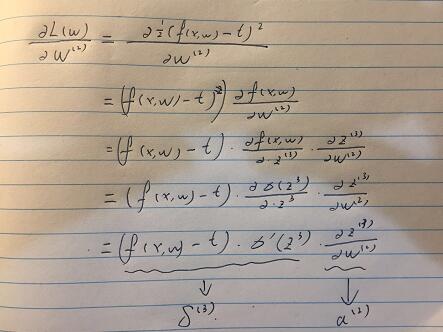 ∂L(w)/∂W⁽²⁾ = ∂ ½ (f(x,w) - t)² / ∂W⁽²⁾
= (f(x,w) - t) ∂f(x,w)/∂W⁽²⁾
= (f(x,w) - t) · ∂f(x,w)/∂·z⁽³⁾ · ∂z⁽³⁾/∂W⁽²⁾
= (f(x,w) - t) · ∂σ(z³)/∂·z³ · ∂z⁽³⁾/∂W⁽²⁾
= (f(x,w) - t) · σ'(z³) · ∂z⁽³⁾/∂W⁽²⁾
↓ ↓
δ⁽³⁾ a⁽²⁾